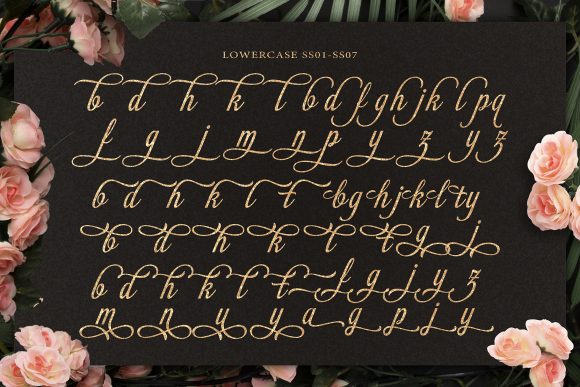 LOWERCASE SS01-SS07
b d h k l b d f g h j k l p q
f g j m n p y z y z
b d h k l t b g h j k l t y
b d h k l t g j
b d h k l t f g j y z
m n y y a g p j y